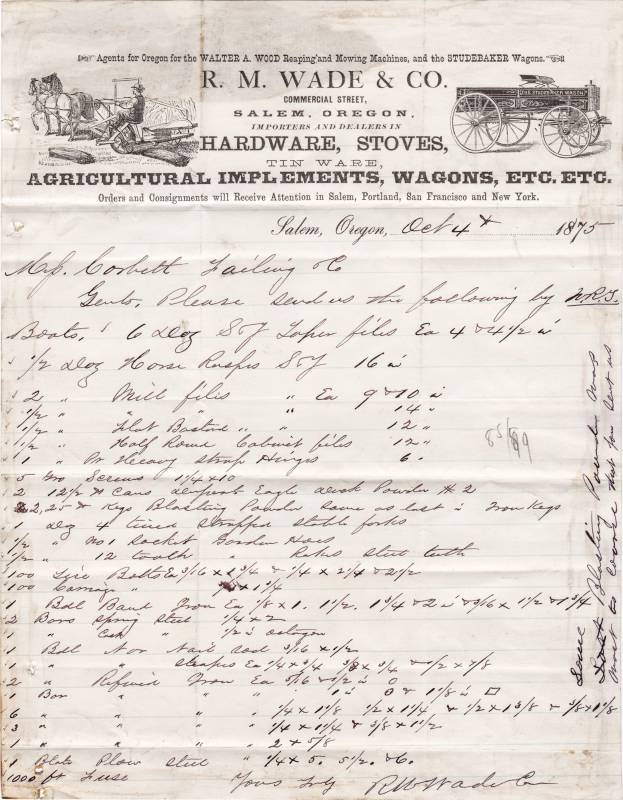 Agents for Oregon for the WALTER A. WOOD Reaping and Mowing Machines, and the STUDEBAKER Wagons.
R. M. WADE & CO.
COMMERCIAL STREET,
SALEM, OREGON,
IMPORTERS AND DEALERS IN
HARDWARE, STOVES,
TIN WARE,
AGRICULTURAL IMPLEMENTS, WAGONS, ETC. ETC.
Orders and Consignments will Receive Attention in Salem, Portland, San Francisco and New York.
Salem, Oregon, Oct 4th 1875
Corbett Failing & Co
Gents, Please send us the following by
Boats. 6 Doz S&J Taper files Ea 4 & 4 1/2 in
1/2 Doz Horse Rasps S&J 16 in
2 " Mill files " Ea 9 & 10 in
1/2 " " " " 14 "
1/2 " Flat Bastard " " 12 "
1/2 " Half Round Cabinet files 12 "
1 " Pr Heavy Strap Hinges 6 "
5 Gro Screws 1 1/4 x 10
2 12 1/2 # Cans Dupont Eagle Duck Powder # 2
2, 25 # Kegs Blasting Powder Same as last in Iron Kegs
1 Doz 4 tined strapped stable forks
1/2 " No 1 Socket Garden Hoes
1/2 " 12 tooth " Rakes steel teeth
100 Tire Bolts Ea 3/16 x 1 3/4 & 1/4 x 2 1/4 & 2 1/2
100 Carriage " x 1 1/4
1 Bdl Band Iron Ea 1/8 x 1. 1 1/2. 1 3/4 & 2 in & 3/16 x 1 1/2 & 1 3/4
2 Bars Spring Steel 1/4 x 2
1 " Cast " 1/2 in octagon
1 Bdl Nor Nail rod 3/16 x 1/2
1 " " Ea 1/4 x 3/4 3/8 x 3/4 & 1/2 x 7/8
2 " Refined Iron Ea 5/16 & 1/2 in O
1 Bar " " 1 in O & 1 1/8 in □
6 " " " 1/4 x 1 1/8 1/2 x 1 1/4 & 1/2 x 1 3/8 & 3/8 x 1 1/8
3 " " " 1/4 x 1 1/4 & 3/8 x 1 1/2
1 " " " 2 x 5/8
1 Plate Plow steel 1/4 x 5. 5 1/2. & 6.
1000 ft Fuse Yours Truly R M Wade & Co
Send Blasting Powder
not so coarse that you sent us